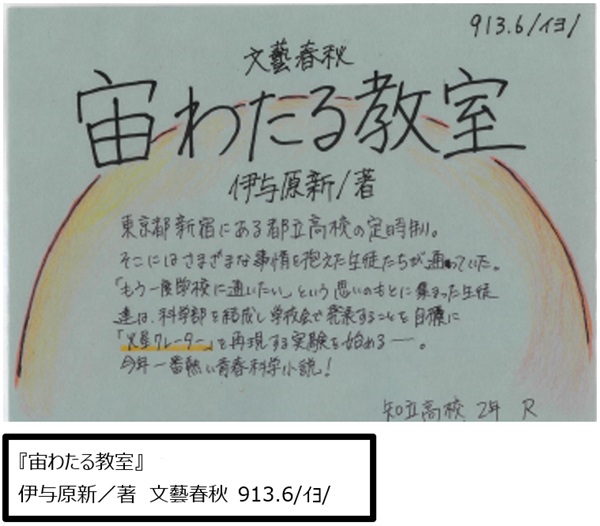 913.6/イヨ/
文藝春秋
宙わたる教室
伊与原新/著
東京都新宿にある都立高校の定時制。
そこにはさまざまな事情を抱えた生徒たちが通っていた。
「もう一度学校に通いたい」という思いのもとに集まった生徒
達は、科学部を結成し学校会で発表することを目標に
「火星クレーター」を再現する実験を始める──。
今年一番熱い青春科学小説!
知立高校 2年 R
『宙わたる教室』
伊与原新／著 文藝春秋 913.6/イヨ/